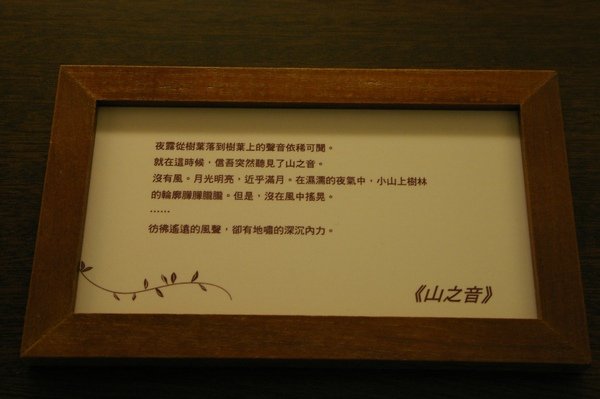 夜露從樹葉落到樹葉上的聲音依稀可聞。
就在這時候，信吾突然聽見了山之音。
沒有風。月光明亮，近乎滿月。在濕濡的夜氣中，小山上樹林
的輪廓朦朦朧朧。但是，沒在風中搖晃。
……
彷彿遙遠的風聲，卻有地嘯的深沉內力。
《山之音》